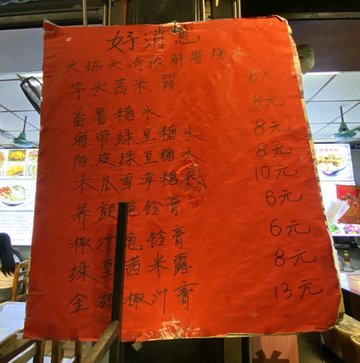 好消息
大热天清按解暑糖水
芋头茜米露 6元
番薯糖水 8元
海带绿豆糖水 8元
陈皮绿豆糖水 8元
木瓜雪耳糖水 10元
养颜龟苓膏 6元
椰汁龟苓膏 6元
绿豆茜米露 8元
金 椰汁膏 13元